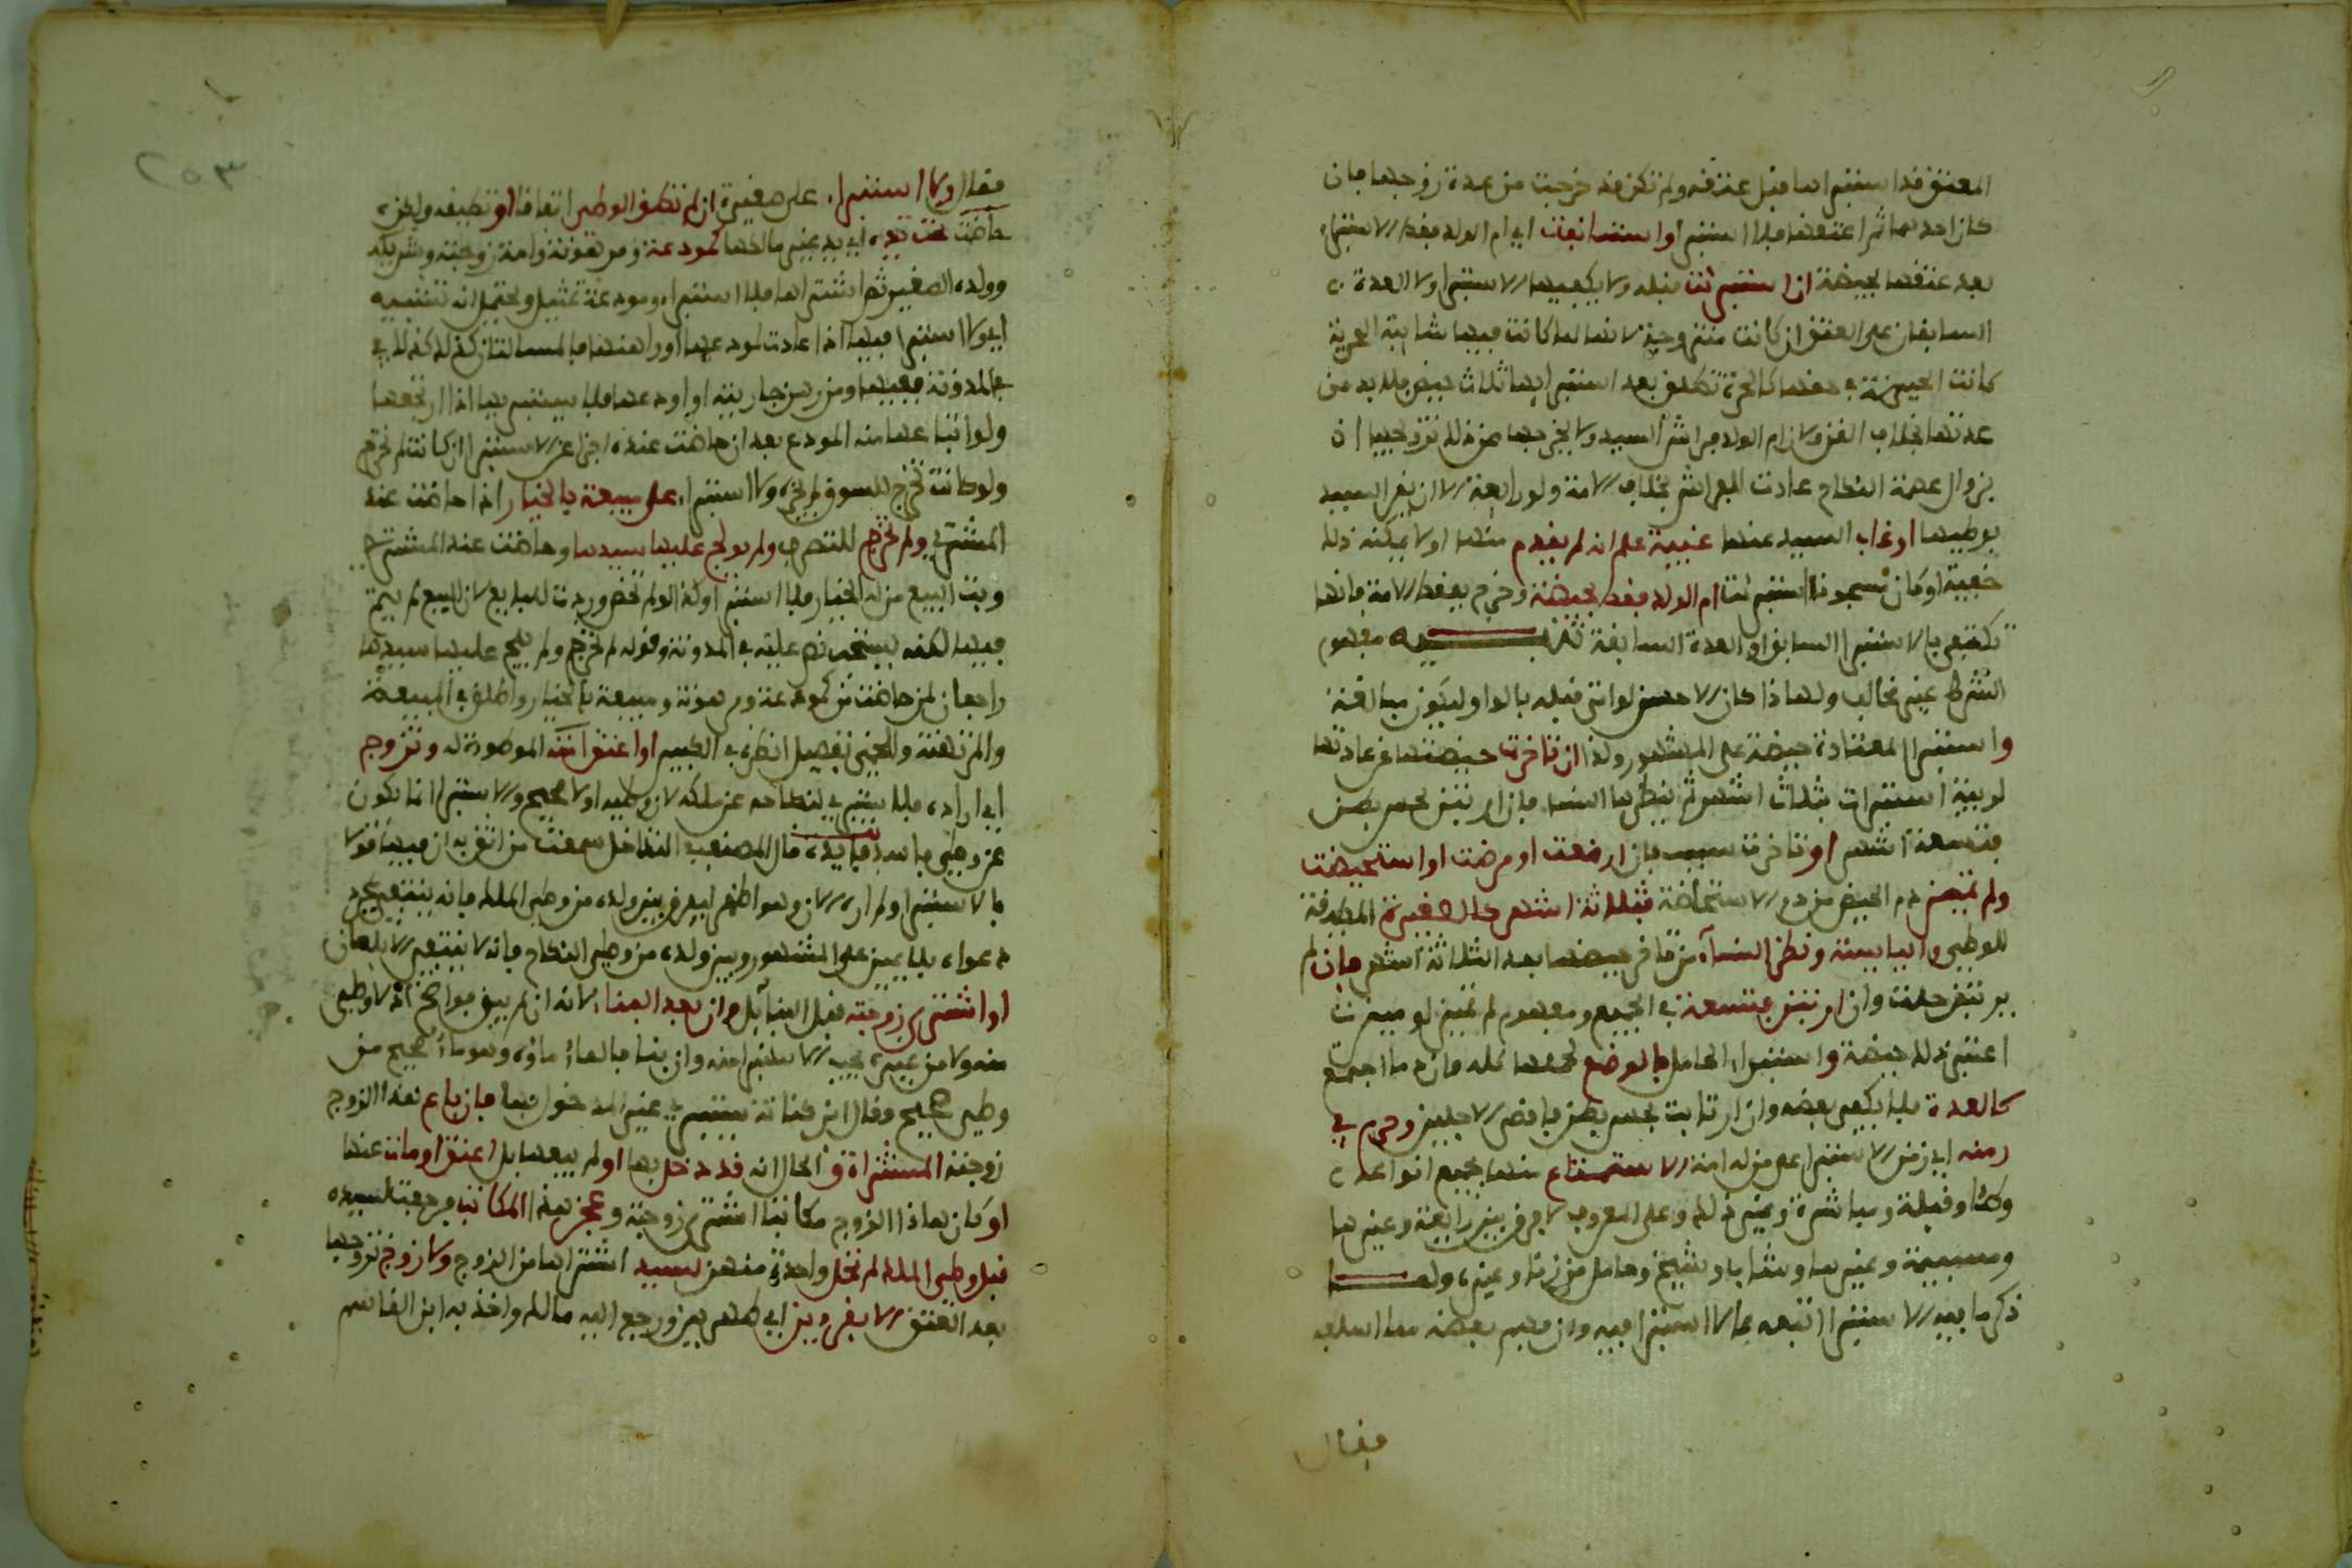 المعتق قد استبراها قبل عتقه ولم تكن قد خرجت من عدة زوجها فإن
كان احدهما ثم اعتقها فلا استبرا او استانفت اي ام الولد فقط الاستبراء
بعد عتقها بحيضة ان استبرئت قبله ولا يكفيها الاستبرا ولا العدة
السابقان على العتق ان كانت متزوجة لانها لما كانت فيها شايبة الحرية
كانت الحيضة في حقها كالحرة تطلق بعد استبرايها ثلاث حيض فلا بد من
عدتها بخلاف القن ولان ام الولد فراش السيد ولا يخرجها عن ذلك تزويجها اذ
بزوال عصمة النكاح عادت للفراش بخلاف الامة ولو رابعة الا ان يقر السيد
بوطيها او غاب السيد عنها غيبة علم انه لم يقدم منها او لا يمكنه ذلك
خفية او كان مسجونا استبرئت ام الولد فقط بحيضة وخرج بفقط الامة فانها
تكتفي بالاستبرا السابق او العدة السابقة تنبيه مفهوم
الشرط غير مخالف ولهاذا كان الاحسن لو اتى قبله بالواو ليكون مبالغة
واستبرا المعتادة حيضة على المشهور ولذا ان تاخرت حيضتها عن عادتها
لريبة استبرات بثلاث اشهر ثم ينظرها النسا فإن ارتبن بحس بطن
فتسعة اشهر او تاخرت بسبب فإن ارضعت او مرضت او استحيضت
ولم تميز دم الحيض من دم الاستحاضة فثلاثة اشهر كالصغيرة المطيقة
للوطي واليايسة ونظر النسآء من تاخر حيضها بعد الثلاثة اشهر فان لم
يرتبن حلت وان ارتبن فتسعة في الجميع ومفهوم لم تميز لو ميزت
اعتبر ذلك حيضة واستبرا الحامل بالوضع لحملها كله فإن دما اجتمع
كالعدة فلا يكفي بعضه وان ارتابت بحس بطن فاقصى الاجلين وحرم في
زمنه اي زمن الاستبرا على من له امة الاستمتاع منها بجميع انواعه
وطئا وقبلة ومباشرة وغير ذلك وعلى المعروف لا فرق بين رايعة وغيرها
ومسبية وغيرها وشاب وشيخ وحامل من زنا وغيره ولما
ذكر ما فيه الاستبرا اتبعه بما لا استبرا فيه وان فهم بعضه مما اسلفه
فقال
٢٥٣
فقال ولا استبرا على صغيرة ان لم تطق الوطي اتفاقا او تطيقه ولكن
حاضت تحت يده اي يد غير مالكها كمودعة ومرهونة وامة زوجته وشريكه
وولده الصغير ثم اشتراها فلا استبراء ومودعة تمثيل ويحتمل انه تشبيه
اي ولا استبرا فيها اذا عادت لمودعها او راهنها فالمسالتان كذلك كذلك في
في المدونة ففيها ومن رهن جاريته او اودعها فلا يستبريها اذا ارتجعها
ولو ابتاعها منه المودع بعد ان حاضت عنده اجزا عن الاستبرا ان كانت لم تخرج
ولو كانت تخرج للسوق لم يجزه ولا استبرا على مبيعة بالخيار اذا حاضت عند
المشتري ولم تخرج للتصرف ولم يولج عليها سيدها وحاضت عند المشتري
وبت البيع من له الخيار فلا استبرا وكذا لو لم تحض وردت للبايع لان البيع لم يتم
فيها لكنه يستحب نص عليه في المدونة وقوله لم تخرج ولم يلج عليها سيدها
راجعان لمن حاضت من كمودعة ومرهونة ومبيعة بالخيار واطلق في المبيعة
والمرتهنة واللخمي تفصيل انظره في الكبير او اعتق امته الموطوءة له وتزوج
اي اراده فلا يستبري لنكاحه عن ملكه لان وطيه اولا صحيح والاستبرا انما يكون
عن وطي فاسد فايدة قال المصنف في التداخل سمعت من اثق به ان فيها قولا
بالاستبرا ولم اره الان وهو اظهر ليفرق بين ولده من وطي الملك فانه ينتفي بمجرد
دعواه بلا يمين على المشهور وبين ولده من وطي النكاح فانه لا ينتفي الا بلعان
او اشترى زوجته قبل البنآء بل وان بعد البناء لانه ان لم يبق فواضح اذ لا وطي
منه ولا من غيره يجب الاستبرا منه وان بنا فالماء ماؤه وهو ماء صحيح من
وطي صحيح وقال ابن كنانة يستبري غير المدخول بها فان باع هذا الزوج
زوجته المشتراة و الحال انه قد دخل بها او لم يبعها بل اعتق او مات عنها
او كان هاذا الزوج مكاتبا اشترى زوجته و عجز هذا المكاتب فرجعت لسيده
قبل وطي الملك لم تحل واحدة منهن لسيد اشتراها من الزوج ولا زوج تزوجها
بعد العتق الا بقروين اي طهرين ورجع اليه مالك واخذ به ابن القاسم